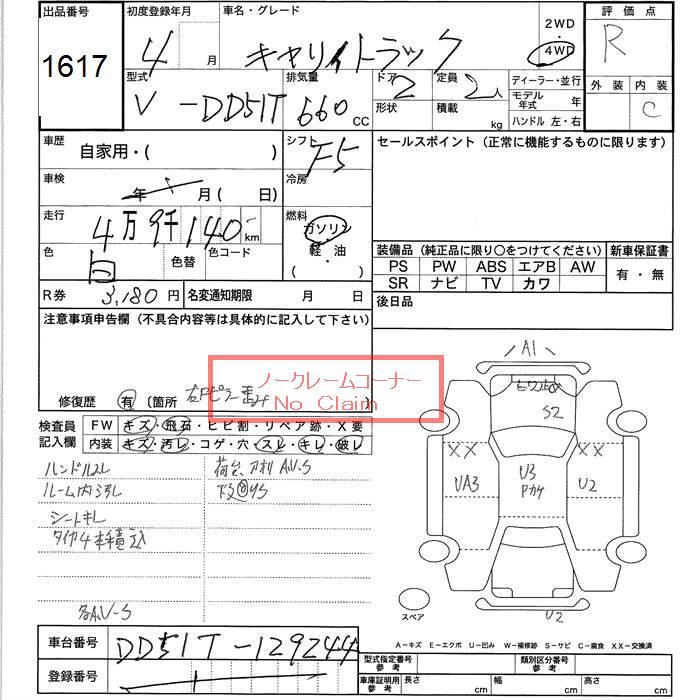 出品番号 初度登録年月 車名・グレード 評価点
1617 4 月 キャリイトラック 2WD 4WD R
型式 排気量 ドア 定員 ディーラー・並行 外装 内装
V-DD51T 660 CC 2 2 人 モデル年式 年 C
形状 積載 kg ハンドル 左・右
車歴 自家用・( ) シフト F5 セールスポイント (正常に機能するものに限ります)
車検 年 月( 日) 冷房
走行 4万9千140 km 燃料 ガソリン 軽・油 ( )
色 白 色替 色コード
装備品 (純正品に限り○をつけてください) 新車保証書
PS PW ABS エアB AW 有・無
SR ナビ TV カワ
R券 3,180円 名変通知期限 月 日 後日品
注意事項申告欄 (不具合内容等は具体的に記入して下さい)
ノークレームコーナー
No Claim
修復歴 有 (箇所
検査員記入欄 FW キズ・飛石・ヒビ割・リペア跡・X要
内装 キズ・汚レ・コゲ・穴・スレ・キレ・破レ
ハンドルスレ
ルーム内汚レ
シートキレ
各AU-S
荷台
A1
S2
XX XX
UA3 U3 U2
U2
スペア
A-キズ E-エクボ U-凹み W-補修跡 S-サビ C-腐食 XX-交換済
車台番号 DD51T-129244
登録番号
型式指定番号参考 類別区分番号参考
車庫証明用参考 長さ cm 幅 cm 高さ cm